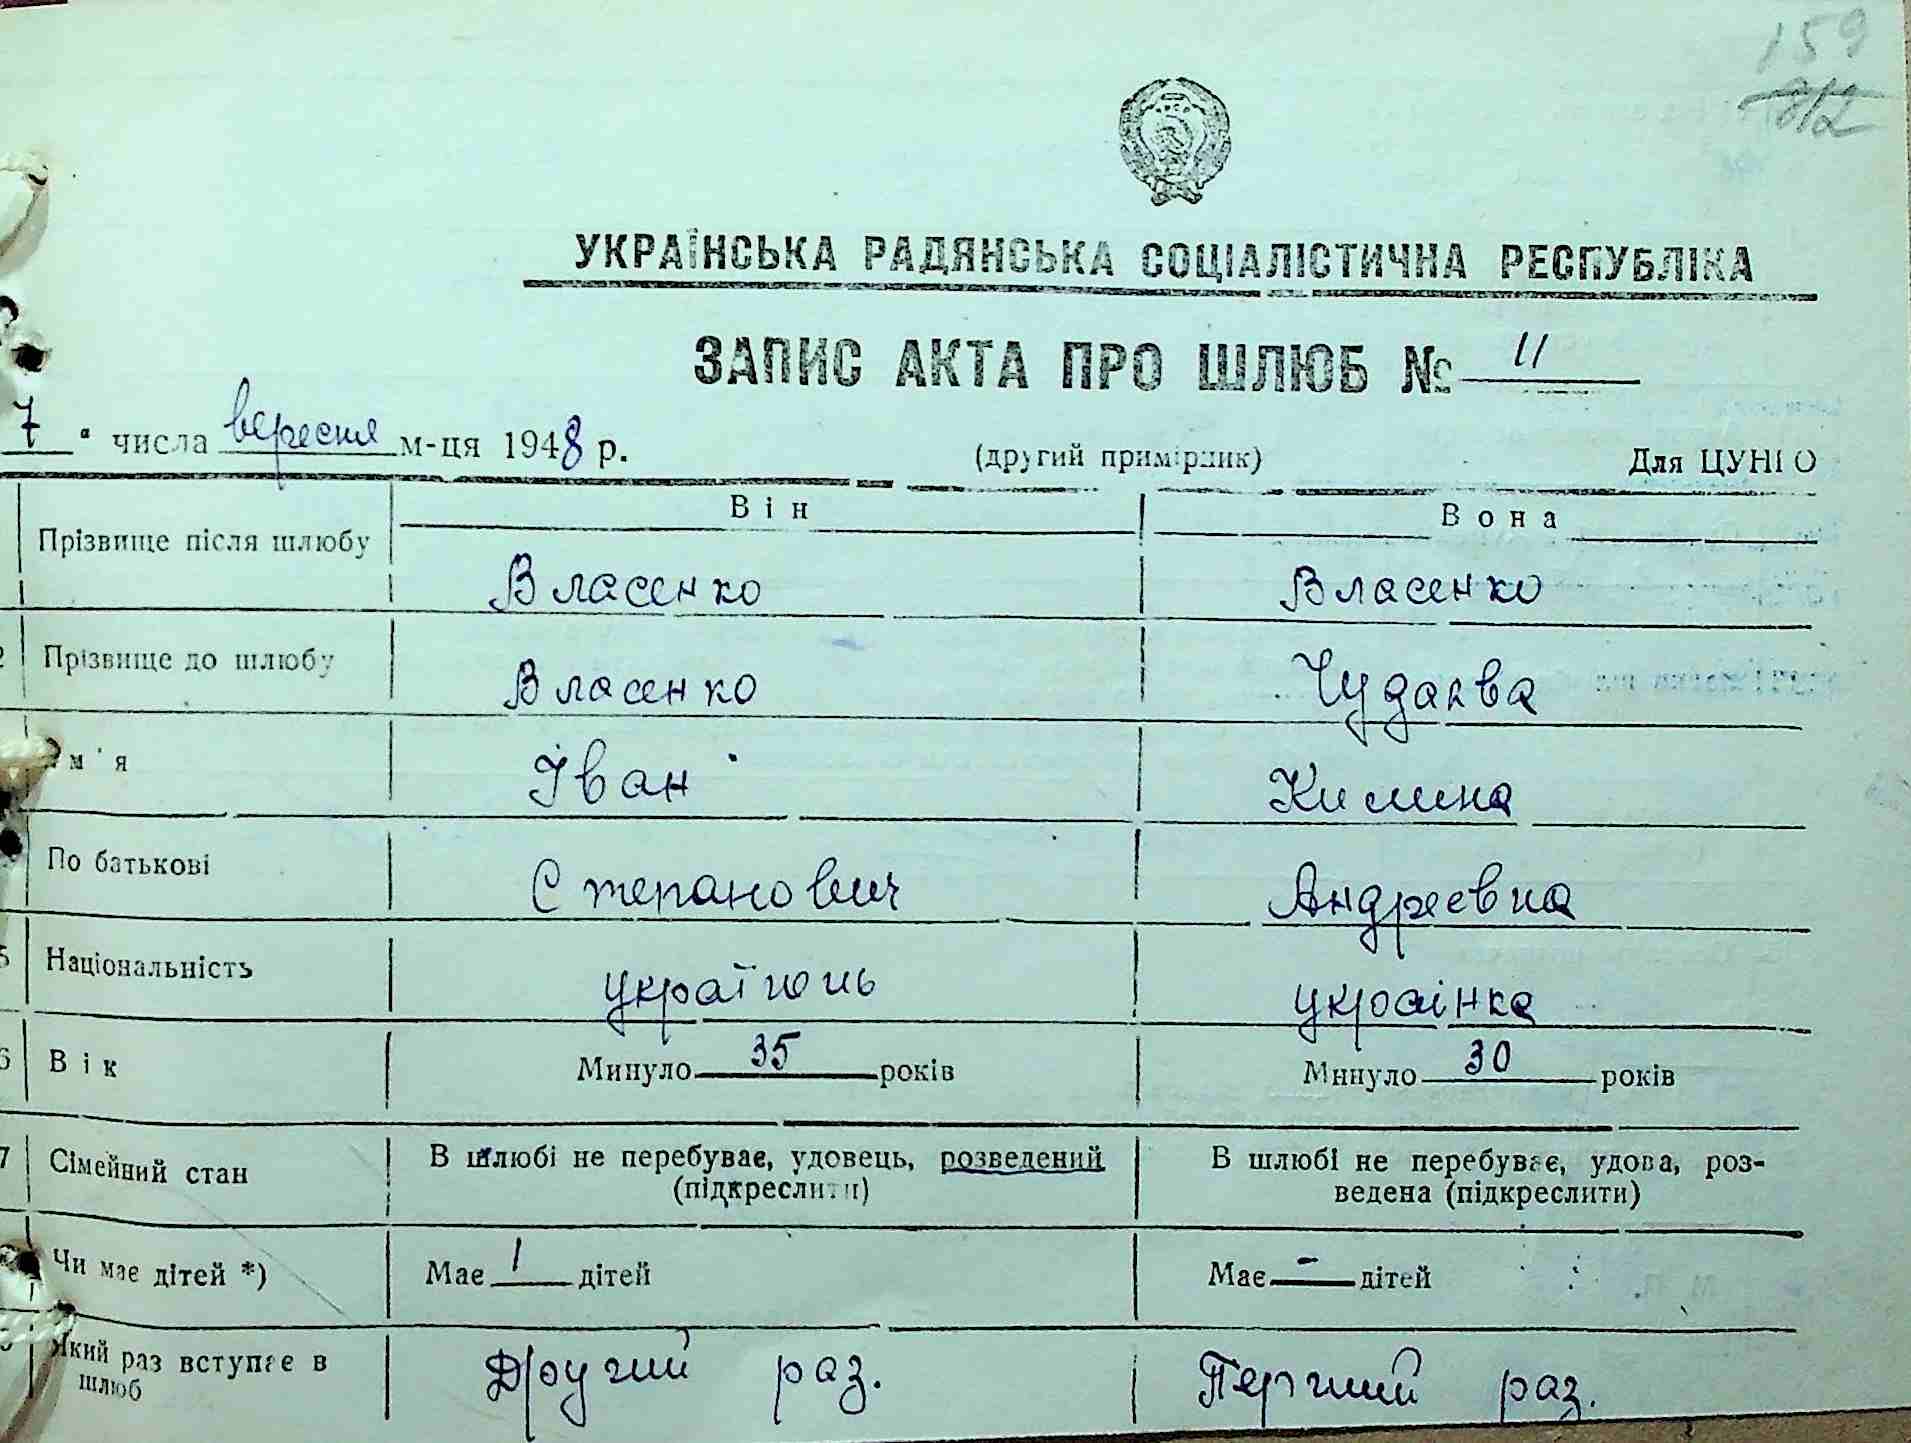 159
312
УКРАЇНСЬКА РАДЯНСЬКА СОЦІАЛІСТИЧНА РЕСПУБЛІКА
ЗАПИС АКТА ПРО ШЛЮБ № 11
7 " числа вересня м-ця 1948 р. (другий примірник) Для ЦУНГО
Він Вона
Прізвище після шлюбу Власенко Власенко
2 Прізвище до шлюбу Власенко Чудаєва
м'я Іван Килина
По батькові Степанович Андреевна
5 Національність українець українка
6 Вік Минуло 35 років Минуло 30 років
7 Сімейний стан В шлюбі не перебуває, удовець, розведений В шлюбі не перебуває, удова, роз-
(підкреслити) ведена (підкреслити)
Чи має дітей *) Має 1 дітей Має - дітей
Який раз вступає в Другий раз. Перший раз.
шлюб